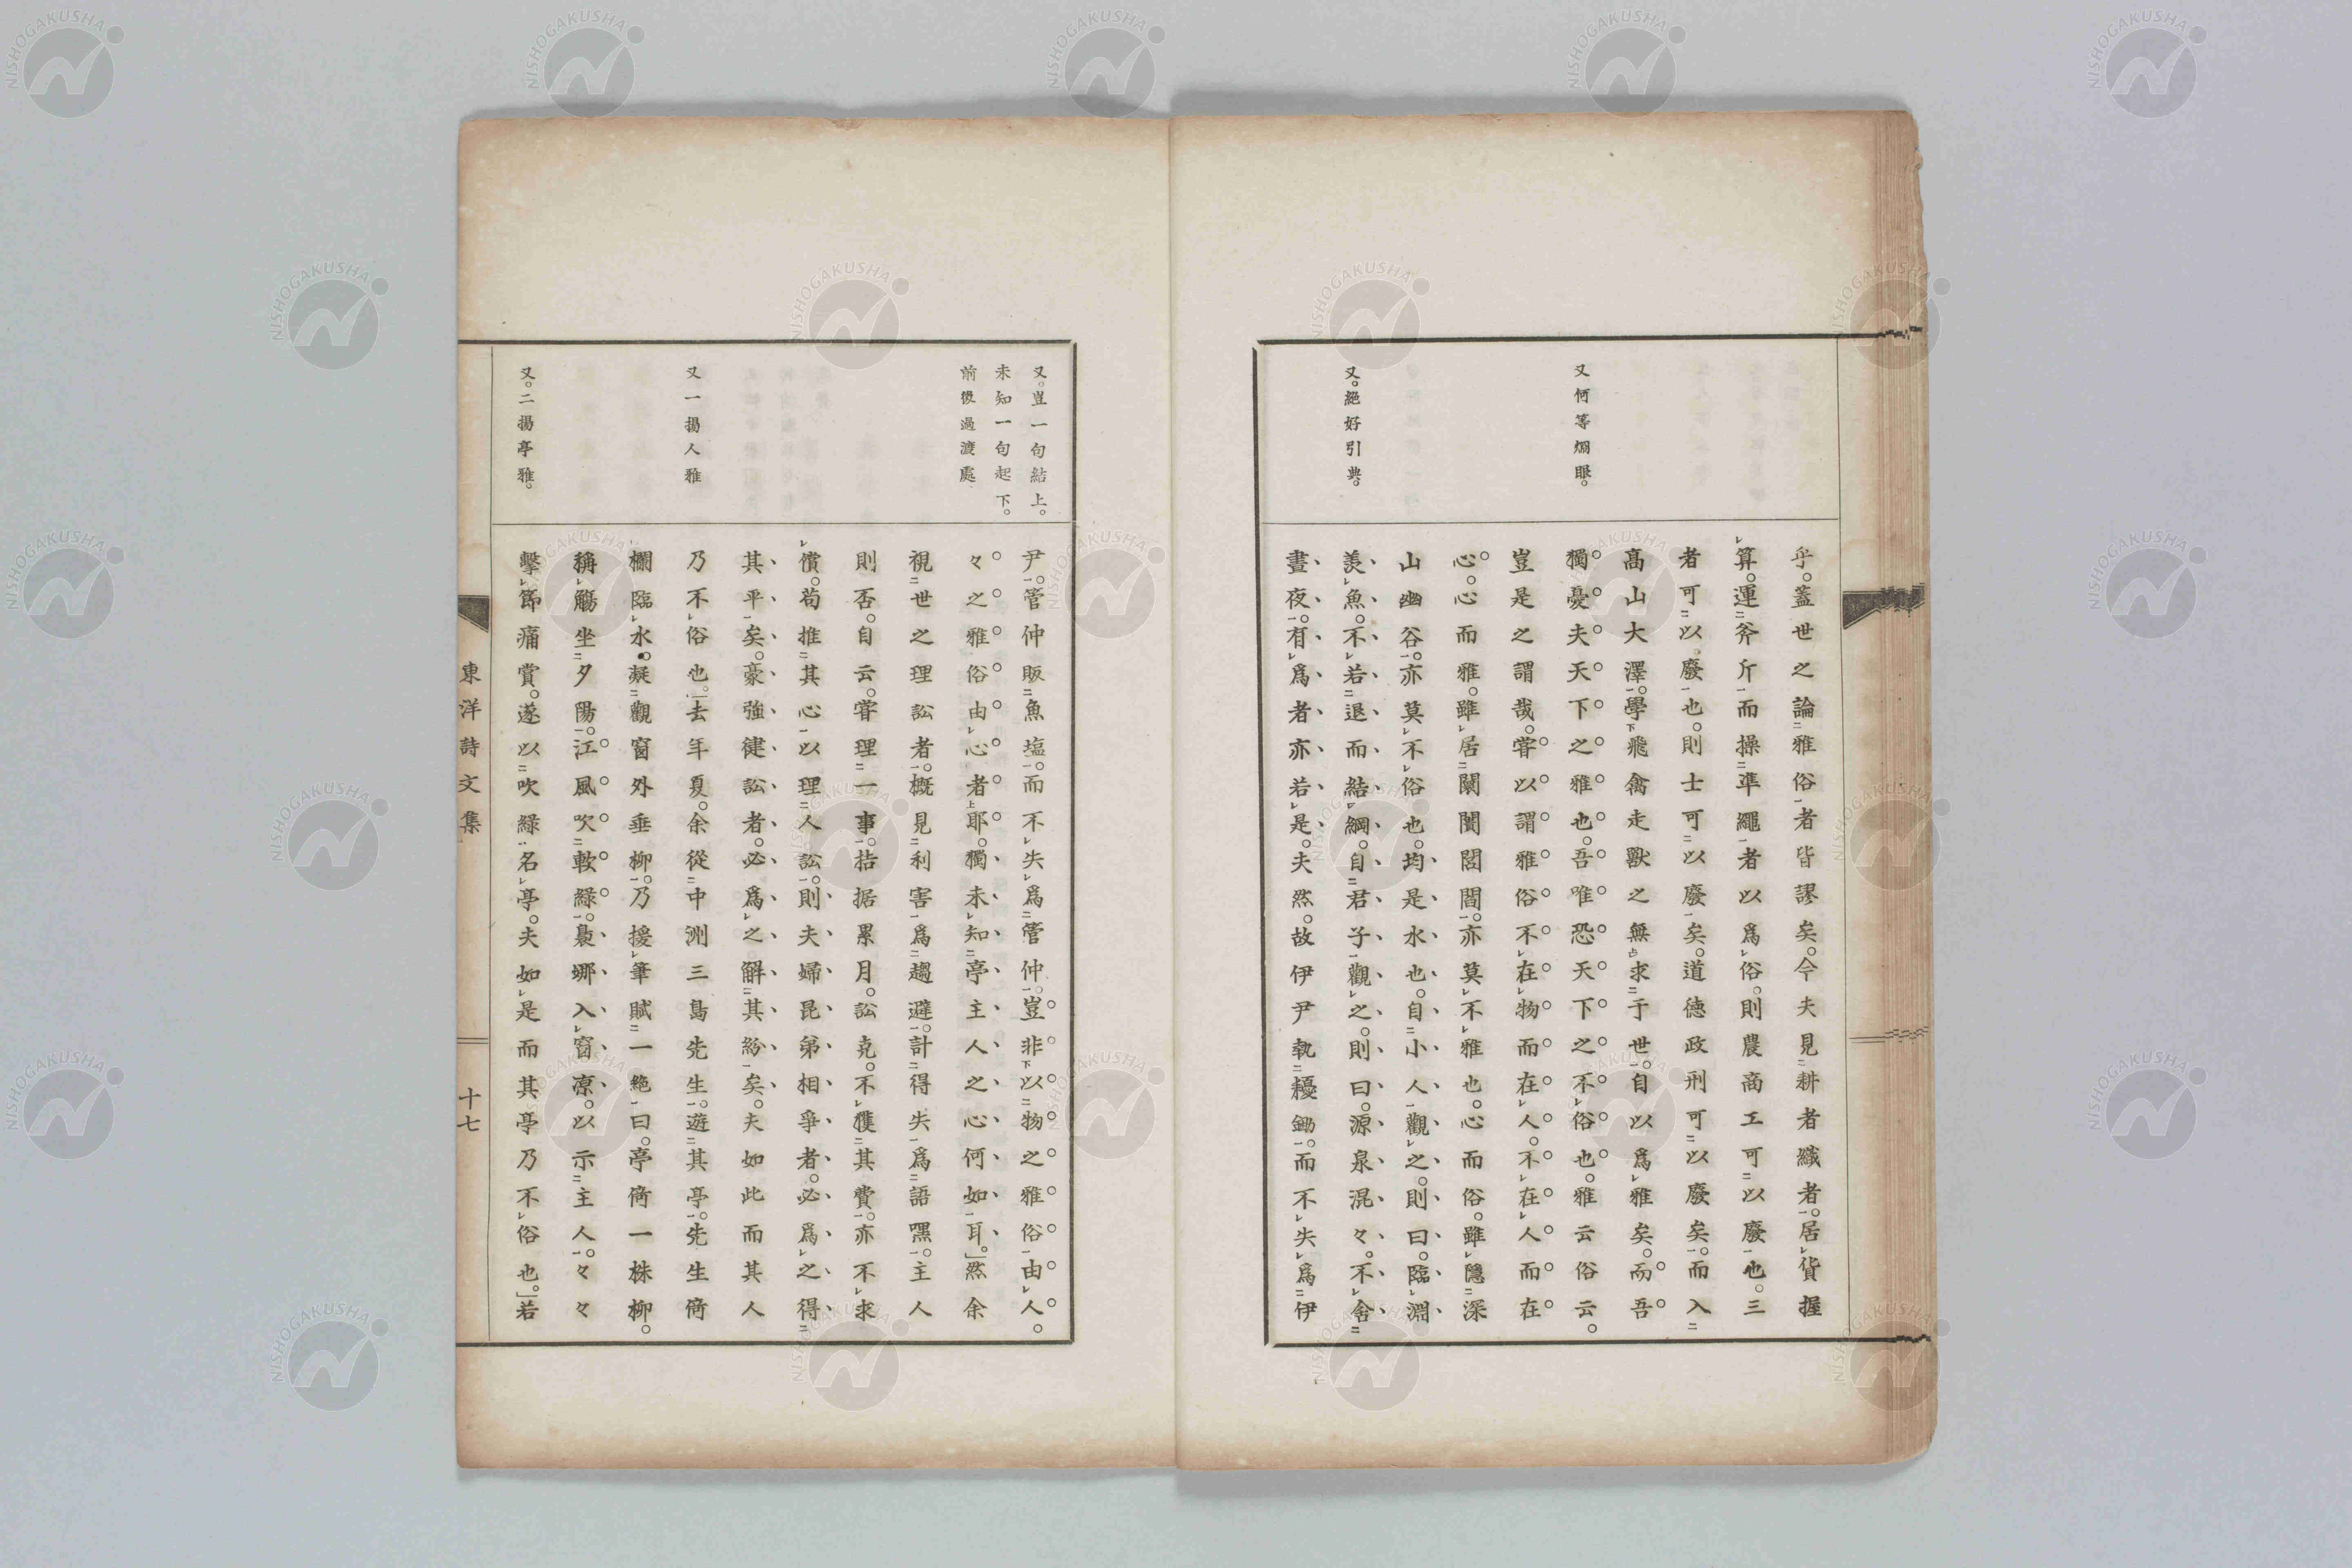 又何等烱眼。
又。絕好引典。
乎。蓋世之論雅俗者皆謬矣。今夫見耕者織者。居貨握
算。運斧斤而操準繩者以爲俗。則農商工可以廢也。三
者可以廢也。則士可以廢矣。道德政刑可以廢矣。而入
高山大澤。學飛禽走獸之無求于世。自以爲雅矣。而吾
獨憂夫天下之雅也。吾唯恐天下之不俗也。雅云俗云。
豈是之謂哉。嘗以謂雅俗不在物而在人。不在人而在
心。心而雅。雖居闤闠閭閻。亦莫不雅也。心而俗。雖隱深
山幽谷。亦莫不俗也。均是水也。自小人觀之。則曰。臨淵
羨魚。不若退而結網。自君子觀之。則曰。源泉混々。不舍
晝夜。有爲者亦若是。夫然。故伊尹執耰鋤。而不失爲伊
又。豈一句結上。
未知一句起下。
前後過渡處
又一揚人雅
又。二揚亭雅。
尹。管仲販魚塩。而不失爲管仲。豈非以物之雅俗由人。
々之雅俗由心者耶。獨未知亭主人之心何如耳。」然余
視世之理訟者。概見利害爲趨避。計得失爲語嘿。主人
則否。自云。嘗理一事。拮据累月。訟克。不獲其費。亦不求
償。苟推其心以理人訟。則夫婦昆弟相爭者。必爲之得
其平矣。豪強健訟者。必爲之解其紛矣。夫如此而其人
乃不俗也。」去年夏。余從中洲三島先生。遊其亭。先生倚
欄臨水。凝觀窗外垂柳。乃援筆賦一絕曰。亭倚一株柳。
稱觴坐夕陽。江風吹軟綠。裊娜入窗凉。以示主人。々々
擊節痛賞。遂以吹綠名亭。夫如是而其亭乃不俗也。」若
東洋詩文集
十七